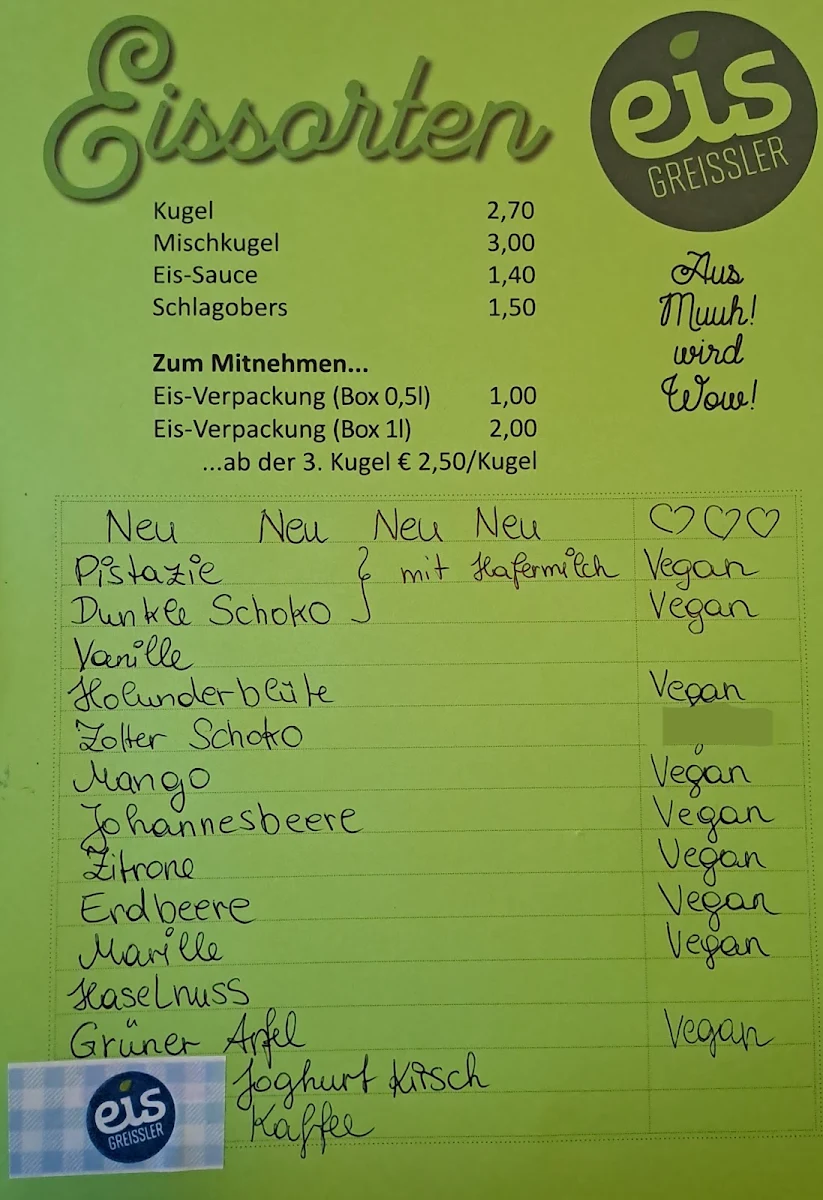 Eissorten
eis
GREISSLER
Kugel 2,70
Mischkugel 3,00
Eis-Sauce 1,40
Schlagobers 1,50
Aus
Muuh!
wird
Wow!
Zum Mitnehmen...
Eis-Verpackung (Box 0,5l) 1,00
Eis-Verpackung (Box 1l) 2,00
...ab der 3. Kugel € 2,50/Kugel
Neu Neu Neu Neu ♡♡♡
Pistazie } mit Hafermilch Vegan
Dunkle Schoko Vegan
Vanille
Holunderblüte Vegan
Zotter Schoko
Mango Vegan
Johannesbeere Vegan
Zitrone Vegan
Erdbeere Vegan
Marille Vegan
Haselnuss
Grüner Apfel Vegan
Joghurt Kirsch
Kaffee
eis
GREISSLER